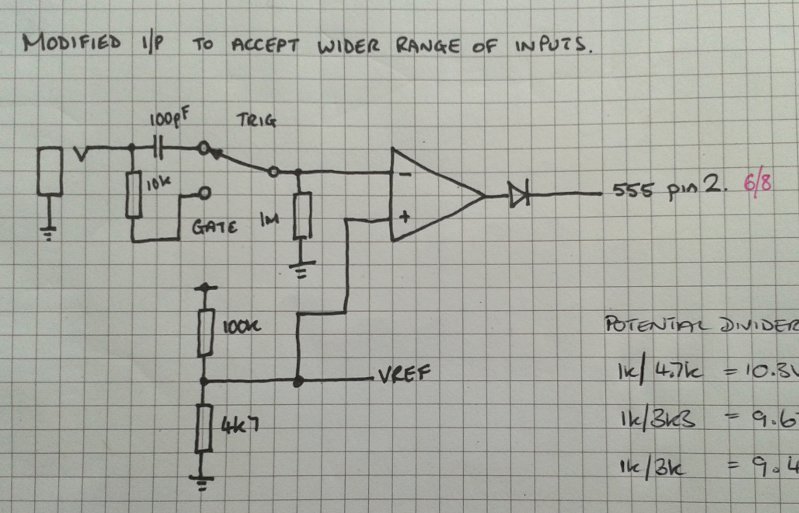 MODIFIED I/P TO ACCEPT WIDER RANGE OF INPUTS.
100pF
TRIG
10k
GATE
1M
-
+
555 pin 2. 6/8
100k
VREF
4k7
POTENTIAL DIVIDER
1k/4.7k = 10.3V
1k/3k3 = 9.6
1k/3k = 9.4